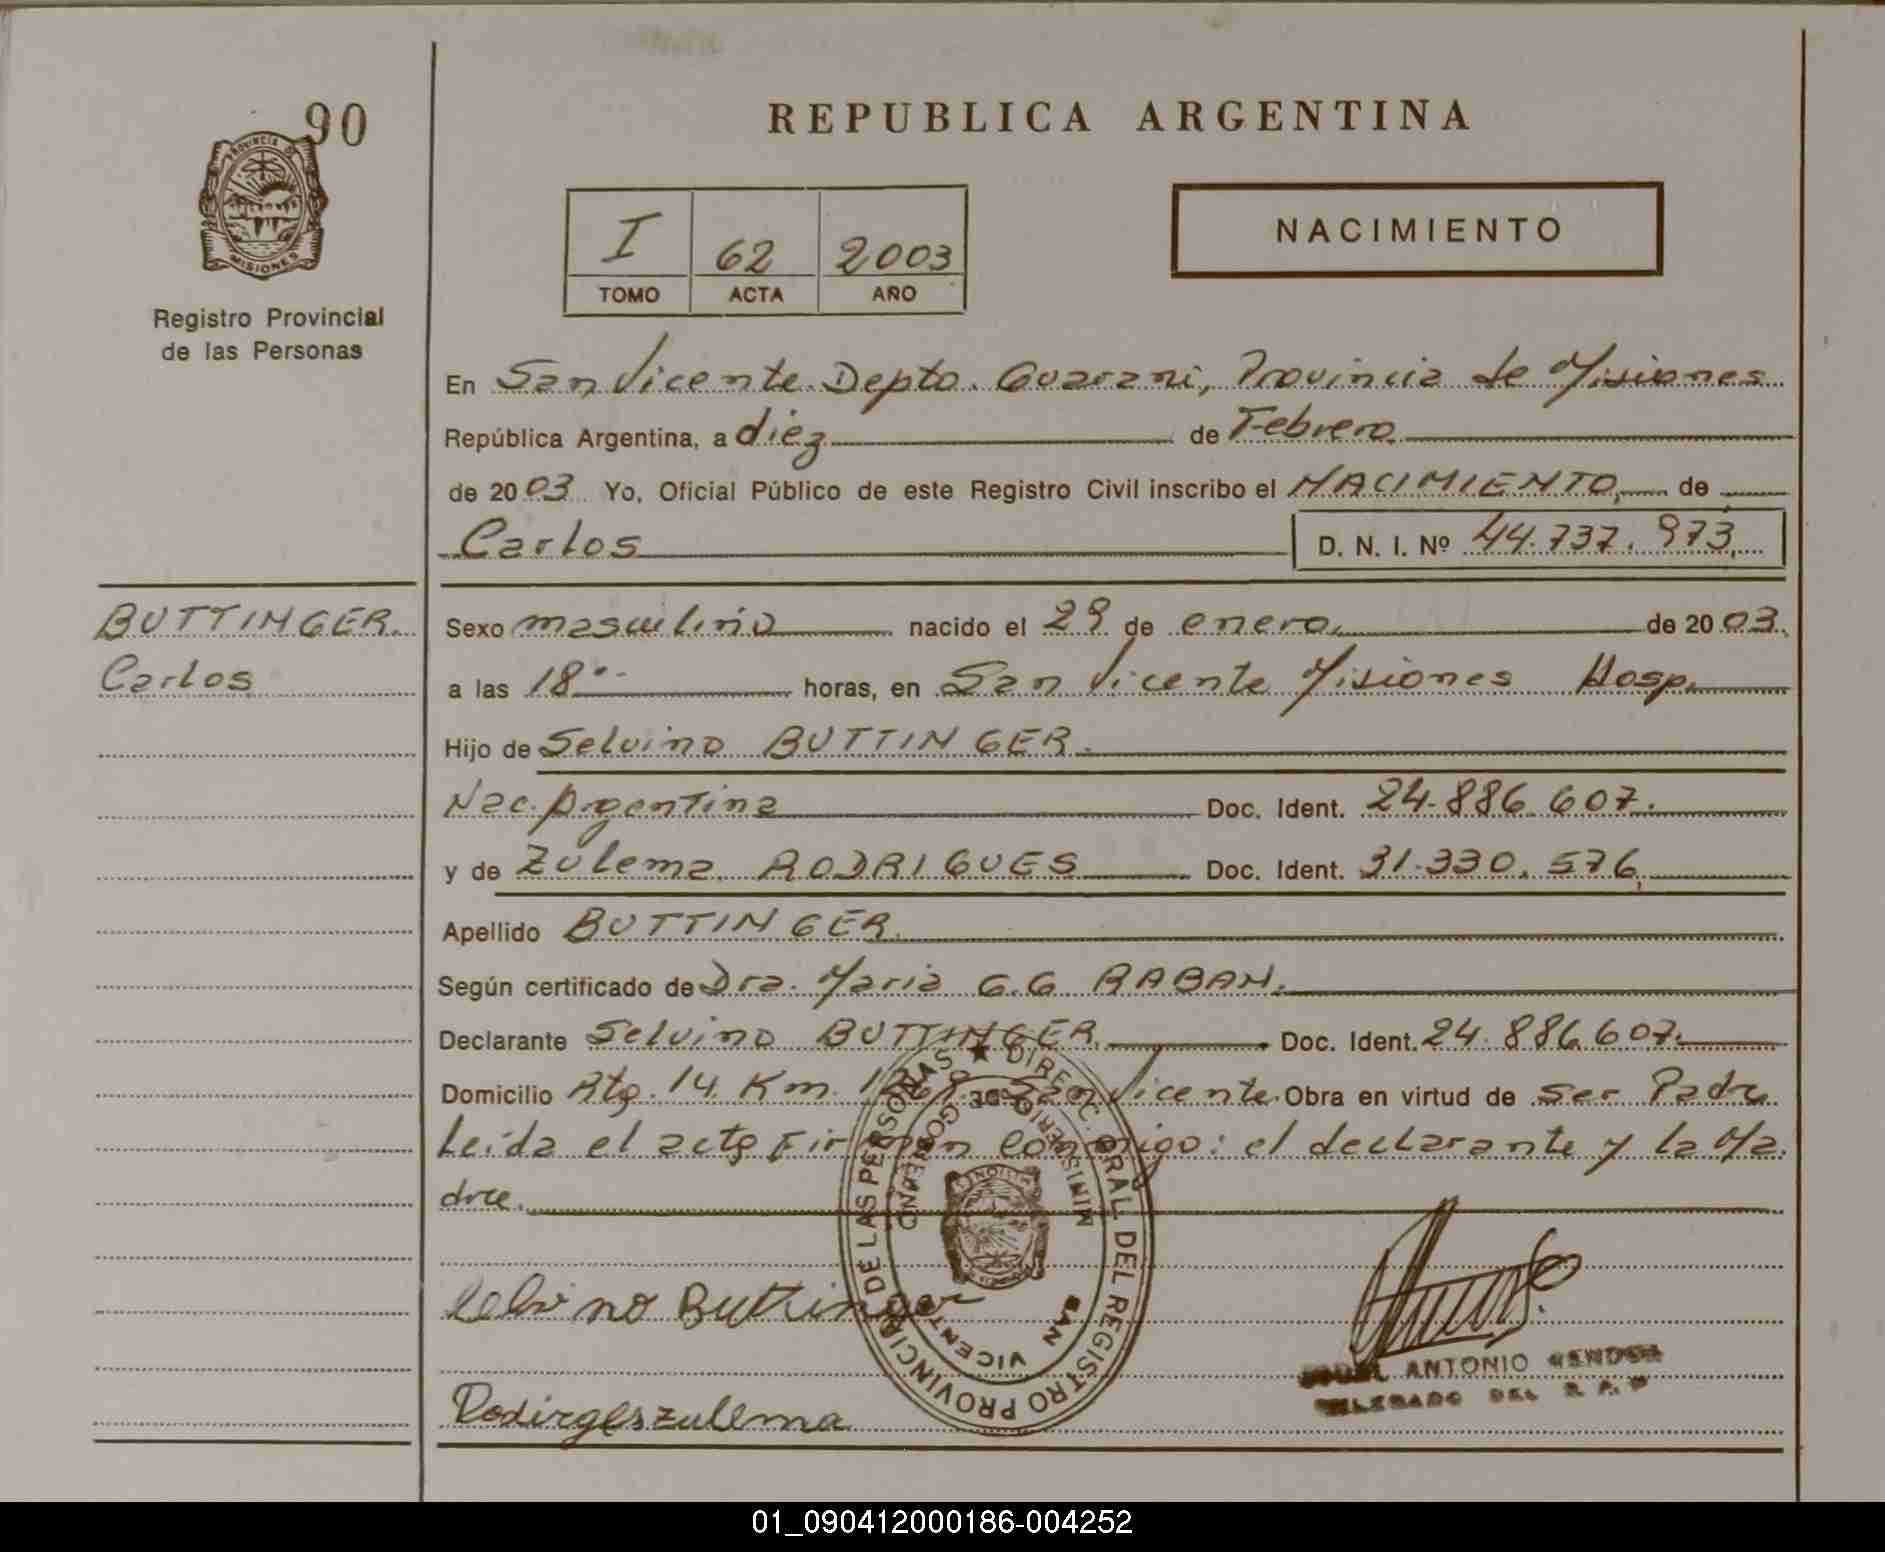 90
PROVINCIA DE
MISIONES
Registro Provincial
de las Personas
REPUBLICA ARGENTINA
I 62 2003
TOMO ACTA AÑO
NACIMIENTO
En San Vicente. Depto. Guarani, Provincia de Misiones
República Argentina, a diez de Febrero.
de 2003 Yo, Oficial Público de este Registro Civil inscribo el NACIMIENTO, de
Carlos D. N. I. Nº 44.737.973,
BUTTINGER.
Carlos
Sexo masculino nacido el 29 de enero, de 2003.
a las 18 horas, en San Vicente Misiones Hosp.
Hijo de Selvino BUTTINGER.
Nac. Argentina Doc. Ident. 24.886.607.
y de Zulema RODRIGUES Doc. Ident. 31.330.576,
Apellido BUTTINGER.
Según certificado de Dra. Maria G.G RABAN.
Declarante Selvino BUTTINGER. Doc. Ident. 24.886.607.
Domicilio Rta. 14. Km. San Vicente. Obra en virtud de ser Padre
Leída el acta Firman conmigo: el declarante y la Ma.
dre.
DIRECC. GRAL. DEL REGISTRO PROVINCIAL DE LAS PERSONAS
MINISTERIO DE GOBIERNO
SAN VICENTE
Selvino Buttinger
ANTONIO
DELEGADO DEL R. P. P
Rodirgues zulema
01_090412000186-004252